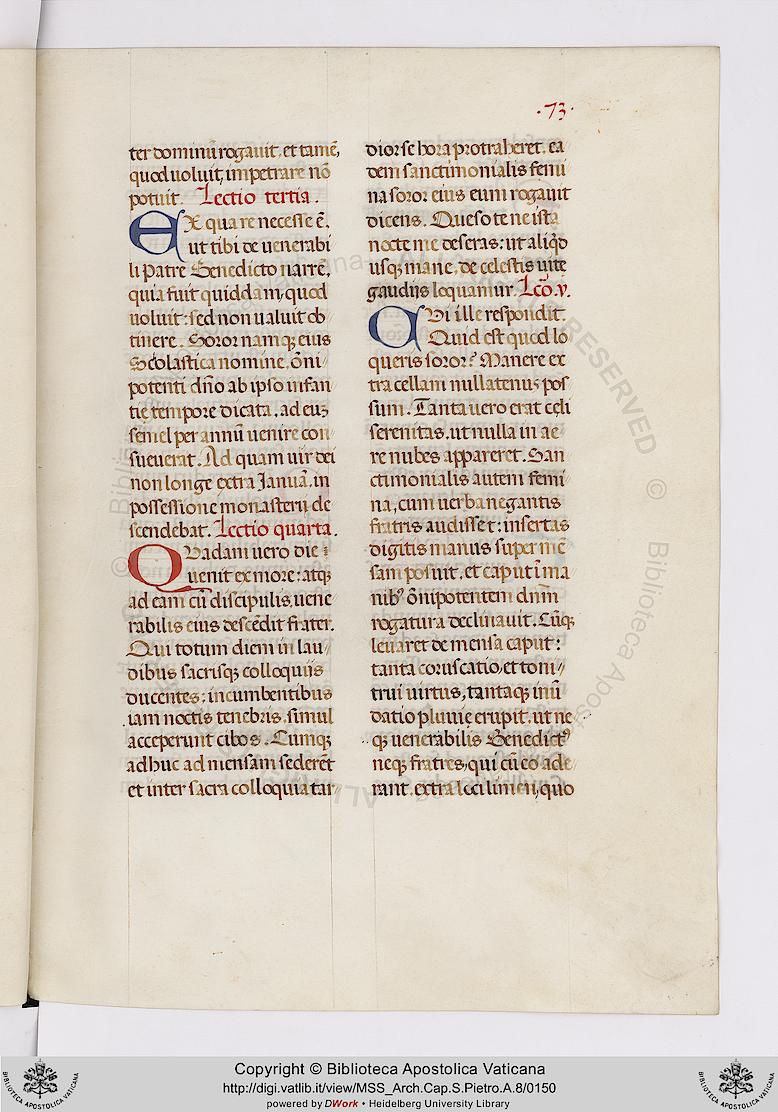 ·73·
ter dominū rogauit, et tamē,
quod uoluit, impetrare nō
potuit. Lectio tertia.
EX qua re necesse ē,
ut tibi de uenerabi
li patre Benedicto narrē,
quia fuit quiddam, quod
uoluit: sed non ualuit ob
tinere. Soror namque eius
Scolastica nomine, ōni
potenti dn̄o ab ipso infan
tię tempore dicata, ad euꝫ
semel per annū uenire con
sueuerat. Ad quam uir dei
non longe extra Januā, in
possessione monasterij de
scendebat. Lectio quarta.
QVadam uero die
uenit ex more: atqꝫ
ad eam cū discipulis, uene
rabilis eius descēdit frater.
Qui totum diem in lau
dibus sacrisqꝫ colloquiis
ducentes: incumbentibus
iam noctis tenebris, simul
acceperunt cibos. Cumqꝫ
adhuc ad mensam sederēt
et inter sacra colloquia tar
dior se hora protraheret, ea
dem sanctimonialis femi
na soror eius eum rogauit
dicens. Queso te ne ista
nocte me deseras: ut aliqd̄
usqꝫ mane, de celestis uite
gaudijs loquamur. Lc̄o. v.
CVi ille respondit.
Quid est quod lo
queris soror? Manere ex
tra cellam nullatenus pos
sum. Tanta uero erat cęli
serenitas, ut nulla in ae
re nubes appareret. San
ctimonialis autem femi
na, cum uerba negantis
fratris audisset: insertas
digitis manus super mē
sam posuit, et caput ī ma
nibꝰ ōnipotentem dn̄m
rogatura declinauit. Cūqꝫ
leuaret de mensa caput:
tanta coruscatio, et toni
trui uirtus, tantaqꝫ inū
datio pluuię erupit, ut ne
qꝫ uenerabilis Benedictꝰ
neqꝫ fratres, qui cū eo ade
rant, extra loci limen, quo
Copyright © Biblioteca Apostolica Vaticana
http://digi.vatlib.it/view/MSS_Arch.Cap.S.Pietro.A.8/0150
powered by DWork • Heidelberg University Library